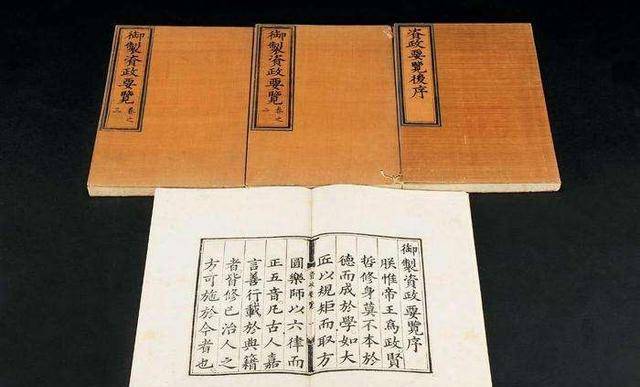 資政要覽後序
御製資政要覽 卷之二
御製資政要覽 卷之三
御製資政要覽序
朕惟帝王爲政賢
哲修身莫不本於
德而成於學如大
匠以規矩而取方
圓樂師以六律而
正五音凡古人嘉
言善行載於典籍
者皆修己治人之
方可施於今者也